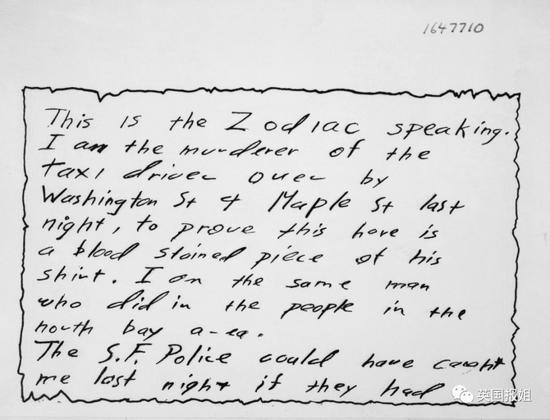 1647710
This is the Zodiac speaking.
I am the murderer of the
taxi driver over by
Washington St & Maple St last
night, to prove this here is
a blood stained piece of his
shirt. I am the same man
who did in the people in the
north bay area.
The S.F. Police could have caught
me last night if they had
英国报姐